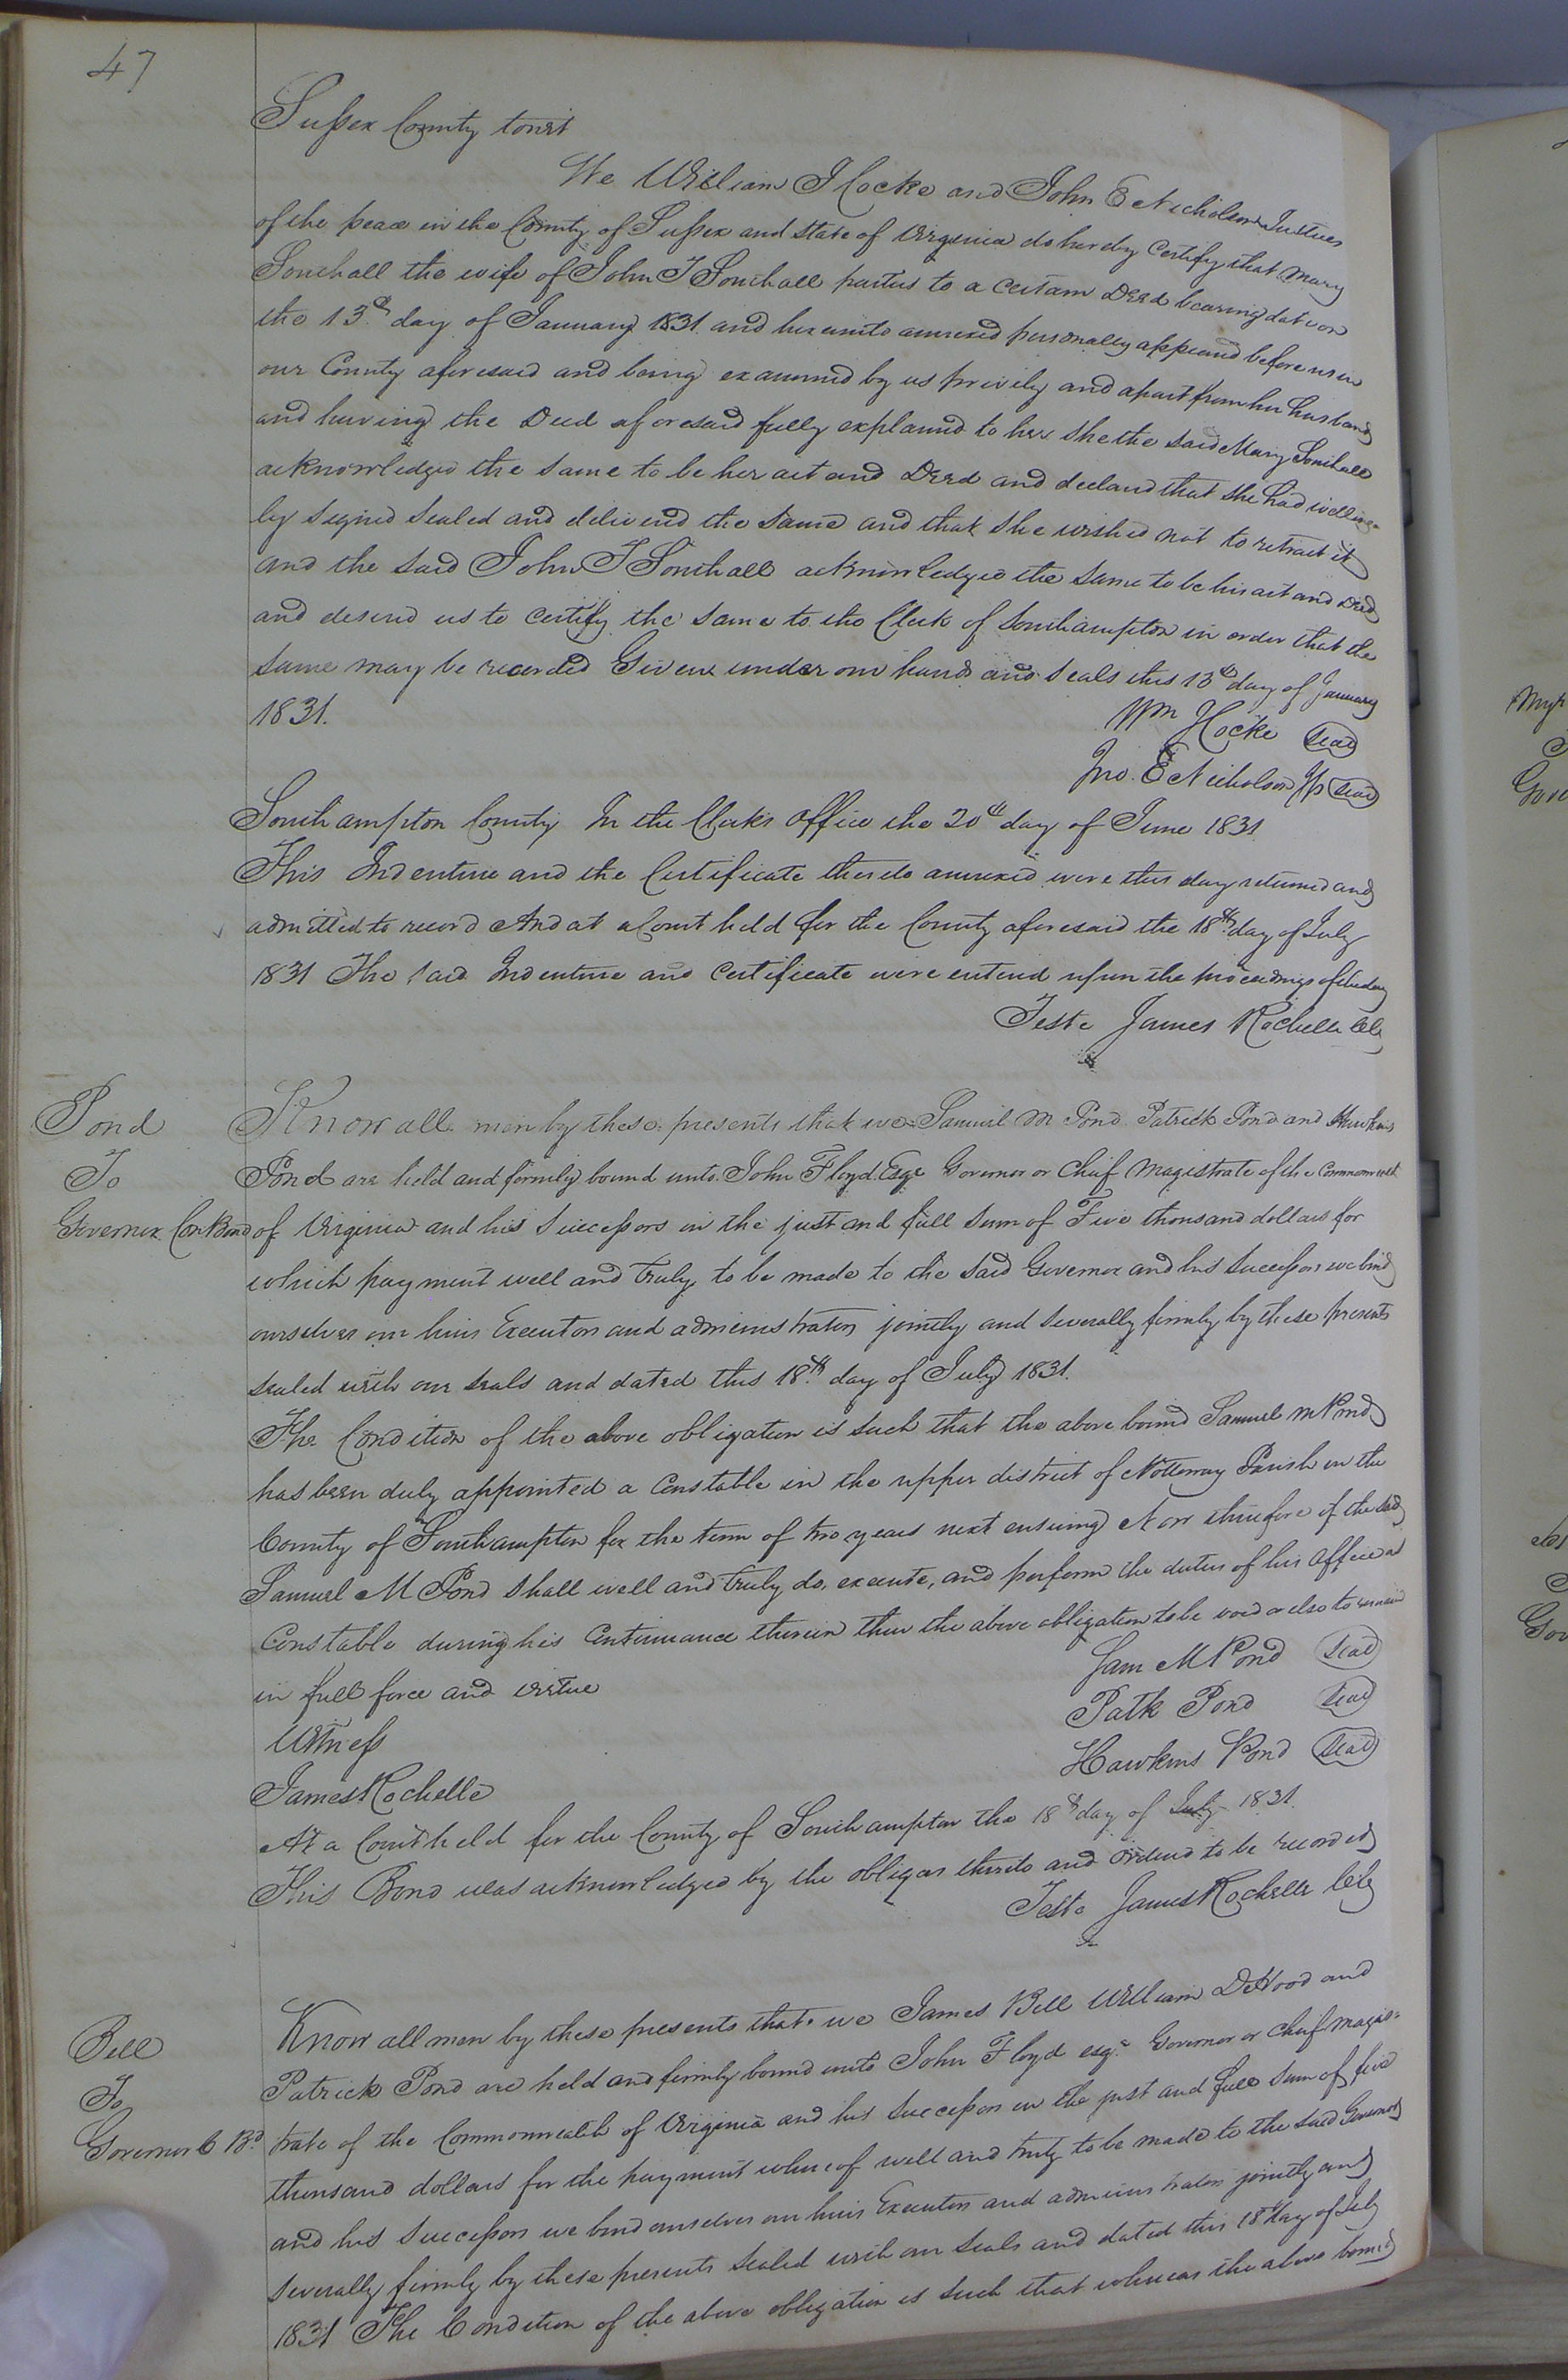 47
Sussex County towit
We William J Cocke and John E Nicholson Justices
of the peace in the County of Sussex and state of Virginia do hereby Certify that Mary
Southall the wife of John T Southall parties to a certain Deed bearing date on
the 13th day of January 1831 and hereunto annexed personally appeared before us in
our County aforesaid and being examined by us privily and apart from her husband
and having the Deed aforesaid fully explained to her she the said Mary Southall
acknowledged the same to be her act and Deed and declared that she had willing-
ly signed sealed and delivered the same and that she wished not to retract it
and the said John T Southall acknowledged the same to be his act and Deed
and desired us to certify the same to the Clerk of Southampton in order that the
same may be recorded Given under our hands and seals this 13th day of January
1831.
Wm J Cocke Seal
Jno. E Nicholson Jp Seal
Southampton County In the Clerks office the 20th day of June 1831
This Indenture and the Certificate thereto annexed were this day returned and
admitted to record And at a Court held for the County aforesaid the 18th day of July
1831 The said Indenture and Certificate were entered upon the proceedings of the day
Teste James Rochelle Clk
Pond
To
Governor Con Bond
Know all men by these presents that we Samuel M Pond Patrick Pond and Hawkins
Pond are held and firmly bound unto John Floyd Esqr Governor or Chief Magistrate of the Commonwealth
of Virginia and his Successors in the just and full sum of Five thousand dollars for
which payment well and truly to be made to the said Governor and his Successors we bind
ourselves our heirs Executors and administrators jointly and severally firmly by these presents
sealed with our seals and dated this 18th day of July 1831.
The Condition of the above obligation is such that the above bound Samuel M Pond
has been duly appointed a Constable in the upper district of Nottoway Parish in the
County of Southampton for the term of two years next ensuing Now therefore if the said
Samuel M Pond shall well and truly do, execute, and perform the duties of his office as
Constable during his Continuance therein then the above obligation to be void or else to remain
in full force and virtue
Sam M Pond Seal
Patk Pond Seal
Hawkins Pond Seal
Witness
James Rochelle
At a Court held for the County of Southampton the 18th day of July 1831.
This Bond was acknowledged by the obligors thereto and ordered to be recorded
Teste James Rochelle Clk
Bell
To
Governor C Bd
Know all men by these presents that we James Bell William Dehood and
Patrick Pond are held and firmly bound unto John Floyd esqr Governor or chief magis-
trate of the Commonwealth of Virginia and his Successors in the just and full sum of five
thousand dollars for the payment whereof well and truly to be made to the said Governor
and his Successors we bind ourselves our heirs Executors and administrators jointly and
severally firmly by these presents sealed with our seals and dated this 18th day of July
1831 The Condition of the above obligation is such that whereas the above bound